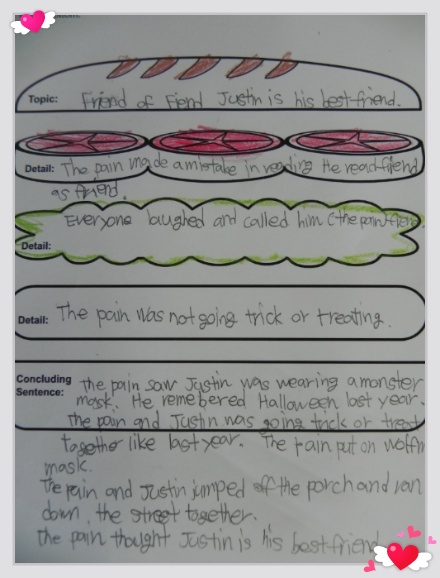 Topic: Friend of Fiend Justin is his best-friend.
Detail: The pain made a mistake in reading He read fiend
as friend.
Everyone laughed and called him the pain fiend.
Detail:
Detail: The pain was not going trick or treating.
Concluding Sentence: the pain saw Justin was wearing a monster
mask. He remebered Halloween last year.
The pain and Justin was going trick or treat
together like last year. The pain put on wolfm
mask.
The pain and Justin jumped off the porch and ran
down, the street together.
the pain thought Justin is his best-friend